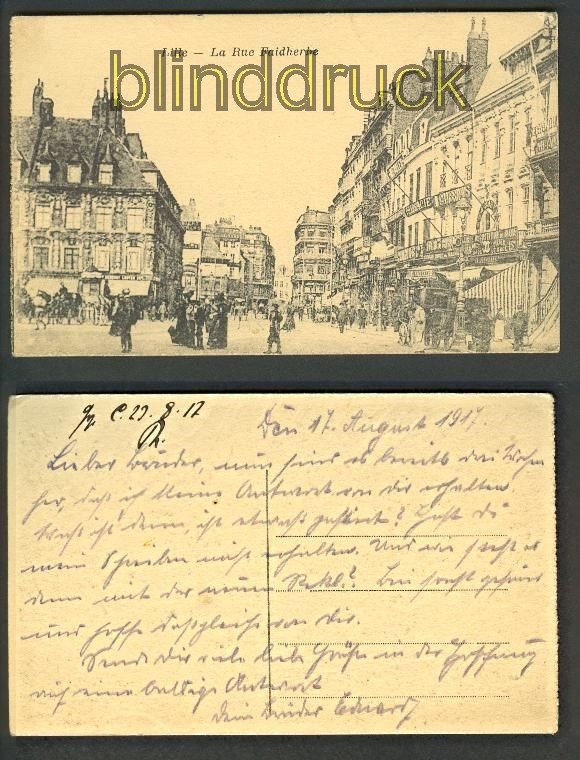 Lille — La Rue Faidherbe
blinddruck
23.8.17
Den 17. August 1917.
Lieber Bruder, nun sind es bereits drei Wochen
her, daß ich keine Antwort von dir erhalten.
Was ist denn, ist etwas passiert? Hast du
mein Schreiben nicht erhalten. Und wie steht es
denn mit der neuen Rekl.? Bin sonst gesund
und hoffe dasgleiche von dir.
Sende dir viele liebe Grüße in der Hoffnung
auf eine baldige Antwort
Dein Bruder Eduard